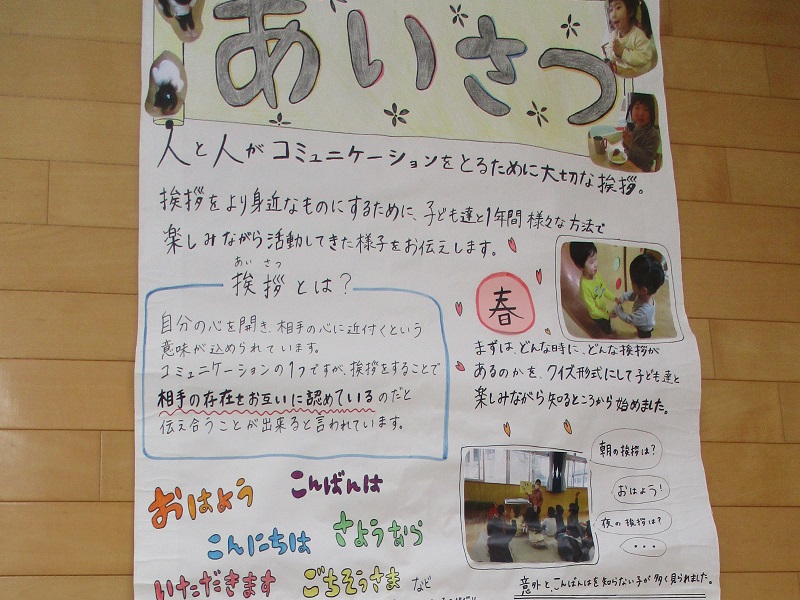 あいさつ
人と人がコミュニケーションをとるために大切な挨拶。
挨拶をより身近なものにするために、子ども達と1年間 様々な方法で
楽しみながら活動してきた様子をお伝えします。
あい さつ
挨拶とは？
自分の心を開き、相手の心に近付くという
意味が込められています。
コミュニケーションの1つですが、挨拶をすることで
相手の存在をお互いに認めているのだと
伝え合うことが出来ると言われています。
春
まずは、どんな時に、どんな挨拶が
あるのかを、クイズ形式にして子ども達と
楽しみながら知るところから始めました。
朝の挨拶は？
おはよう！
夜の挨拶は？
・・・
おはよう
こんばんは
こんにちは
さようなら
いただきます
ごちそうさま など
意外と、こんばんはを知らない子が多く見られました。